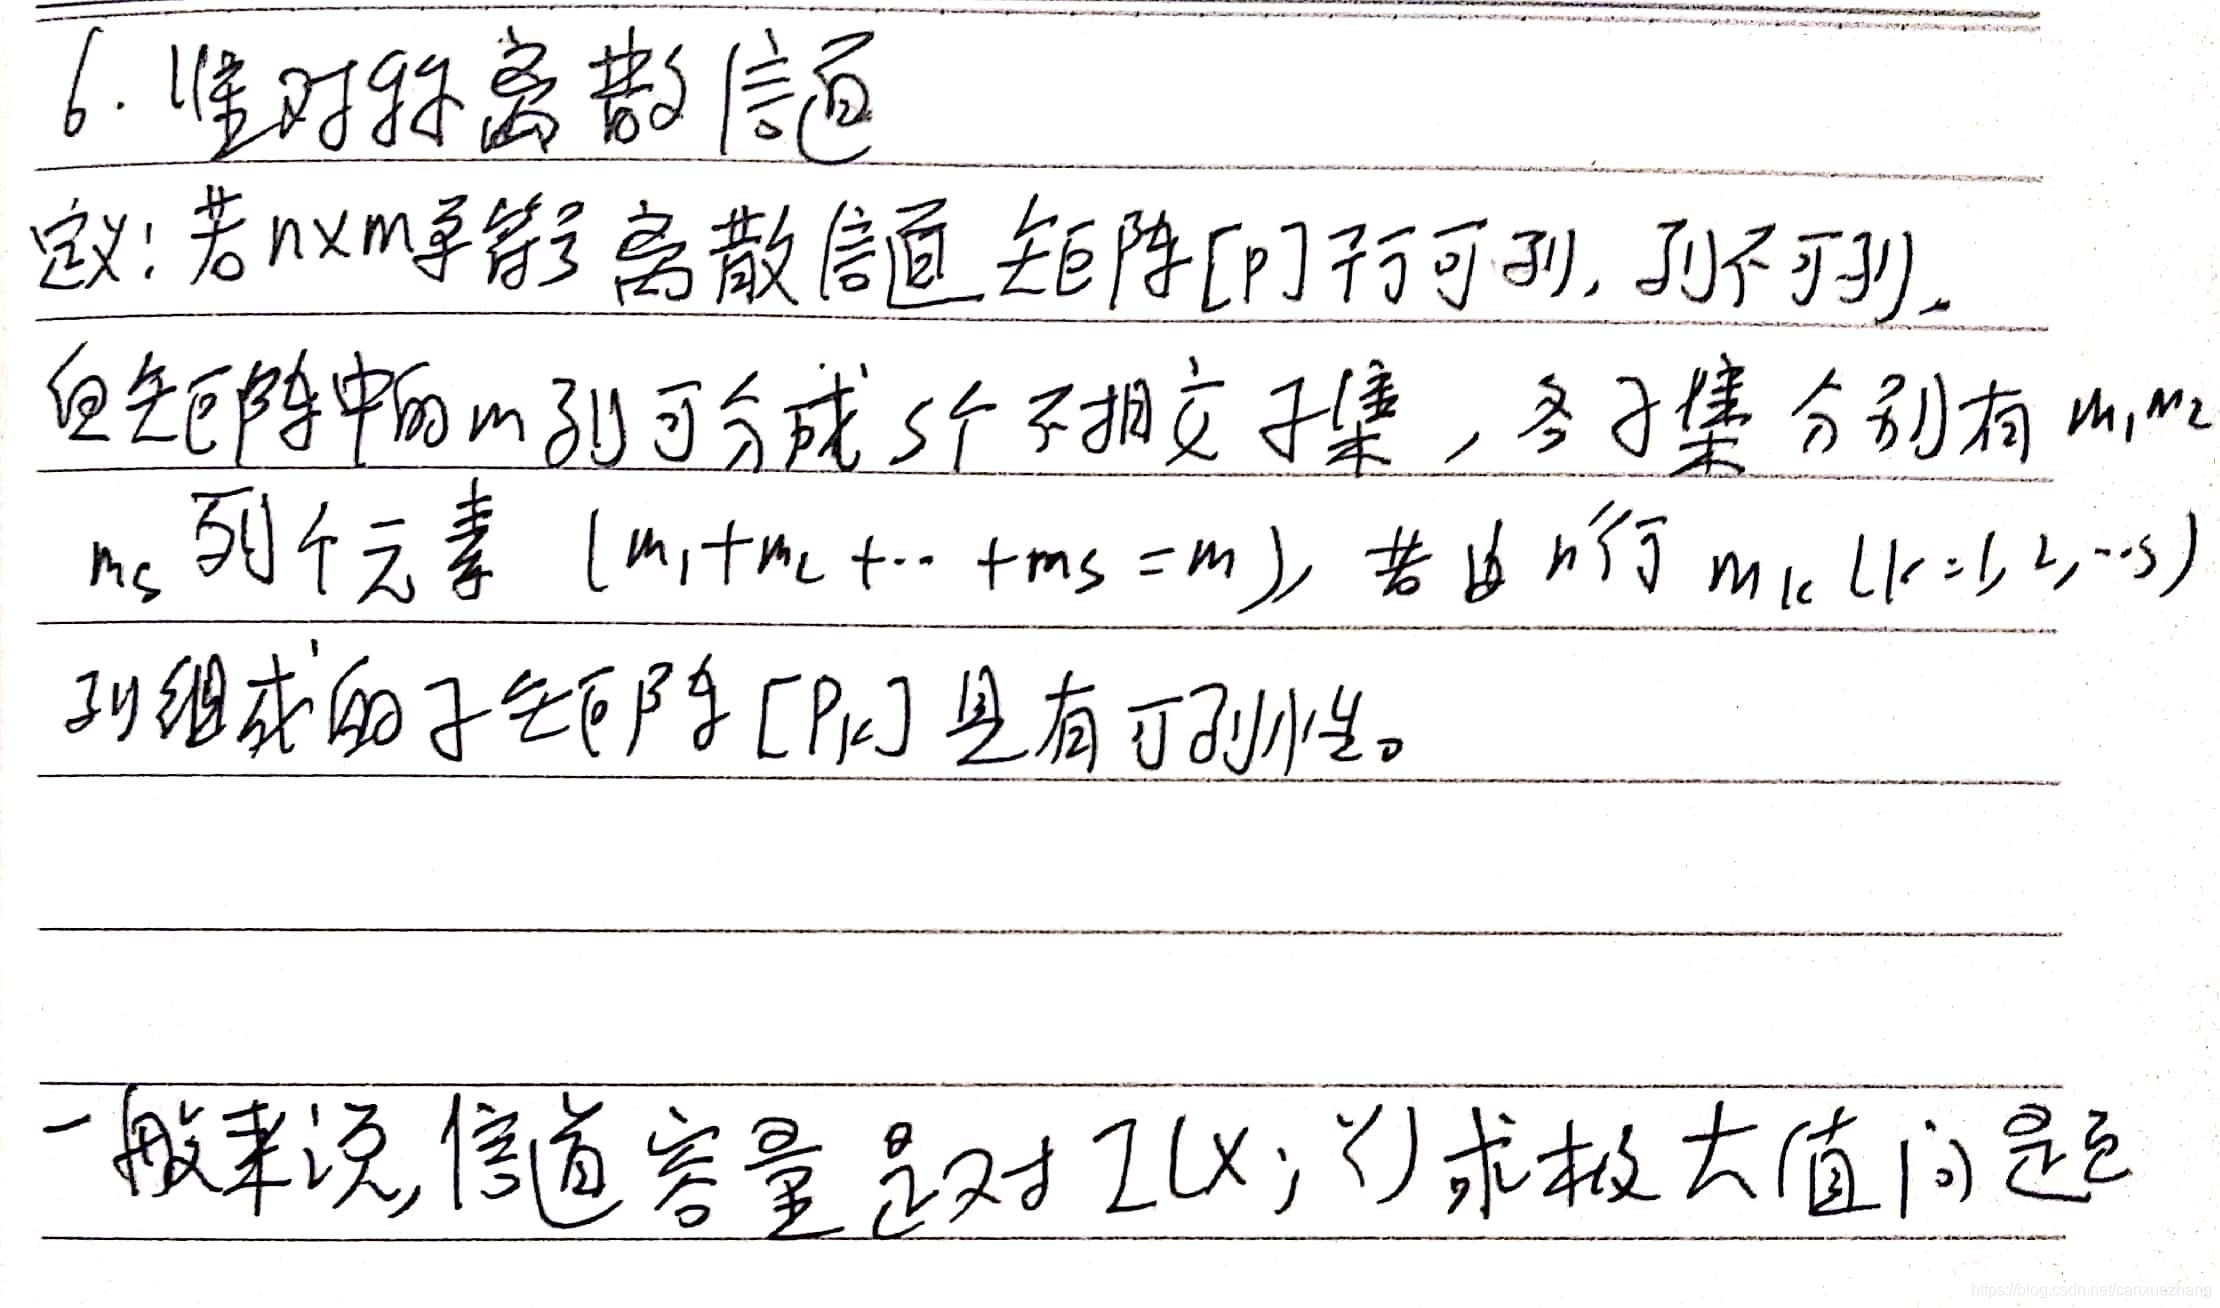 6. 准对称离散信道
定义：若n×m单符号离散信道矩阵[P]行可列，列不可列，
但矩阵中的m列可分成s个不相交子集，各子集分别有m₁m₂
mₛ列个元素（m₁+m₂+…+mₛ=m），若由n行mₖ（k=1,2,…s）
列组成的子矩阵[Pₖ]具有可列性。
一般来说，信道容量是对I(X；Y)求极大值问题
https://blog.csdn.net/canxuezhang